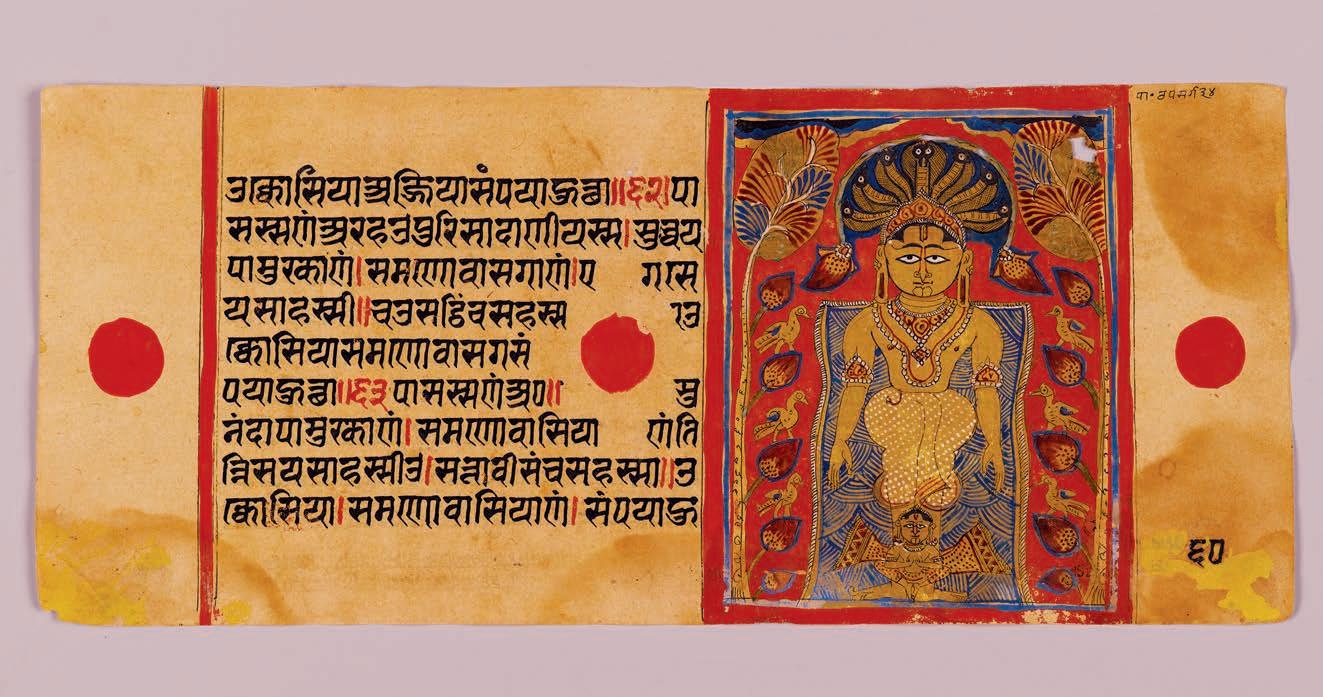 उक्कोसिया अज्जियासंपया हुत्था॥६२॥पा
सस्स णं अरहउ पुरिसादाणीयस्स। सुव्वय
पामुरकाणं।समणोवासगाणं।ए गा स
यसाहस्सी॥चउसट्ठिं च सहस्स उ
क्कोसिया समणोवासगसं
पया हुत्था॥६३ पासस्स णं अ०॥ सु
नंदापामुरकाणं।समणोवासिया णं ति
न्नि सयसाहस्सीउ।सत्तावीसं च सहस्सा॥उ
क्कोसिया।समणोवासियाणं। संपया हु
पा॰ उपसर्ग ३४
६०